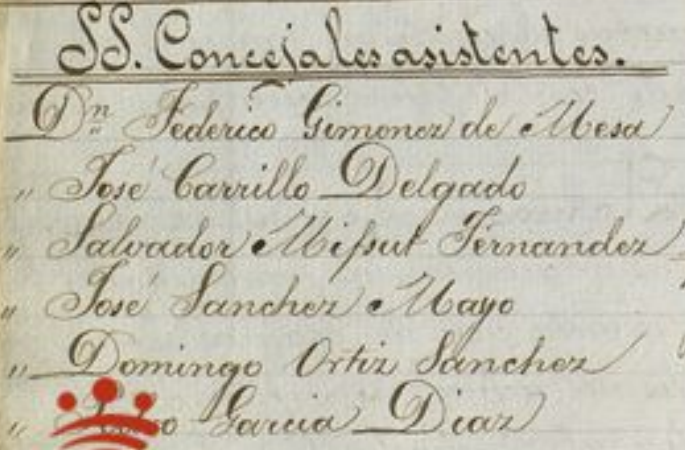 SS. Concejales asistentes.
Dn Federico Gimenez de Mesa
" José Carrillo Delgado
" Salvador Mifsut Fernandez
" José Sanchez Mayo
" Domingo Ortiz Sanchez
" Garcia Diaz